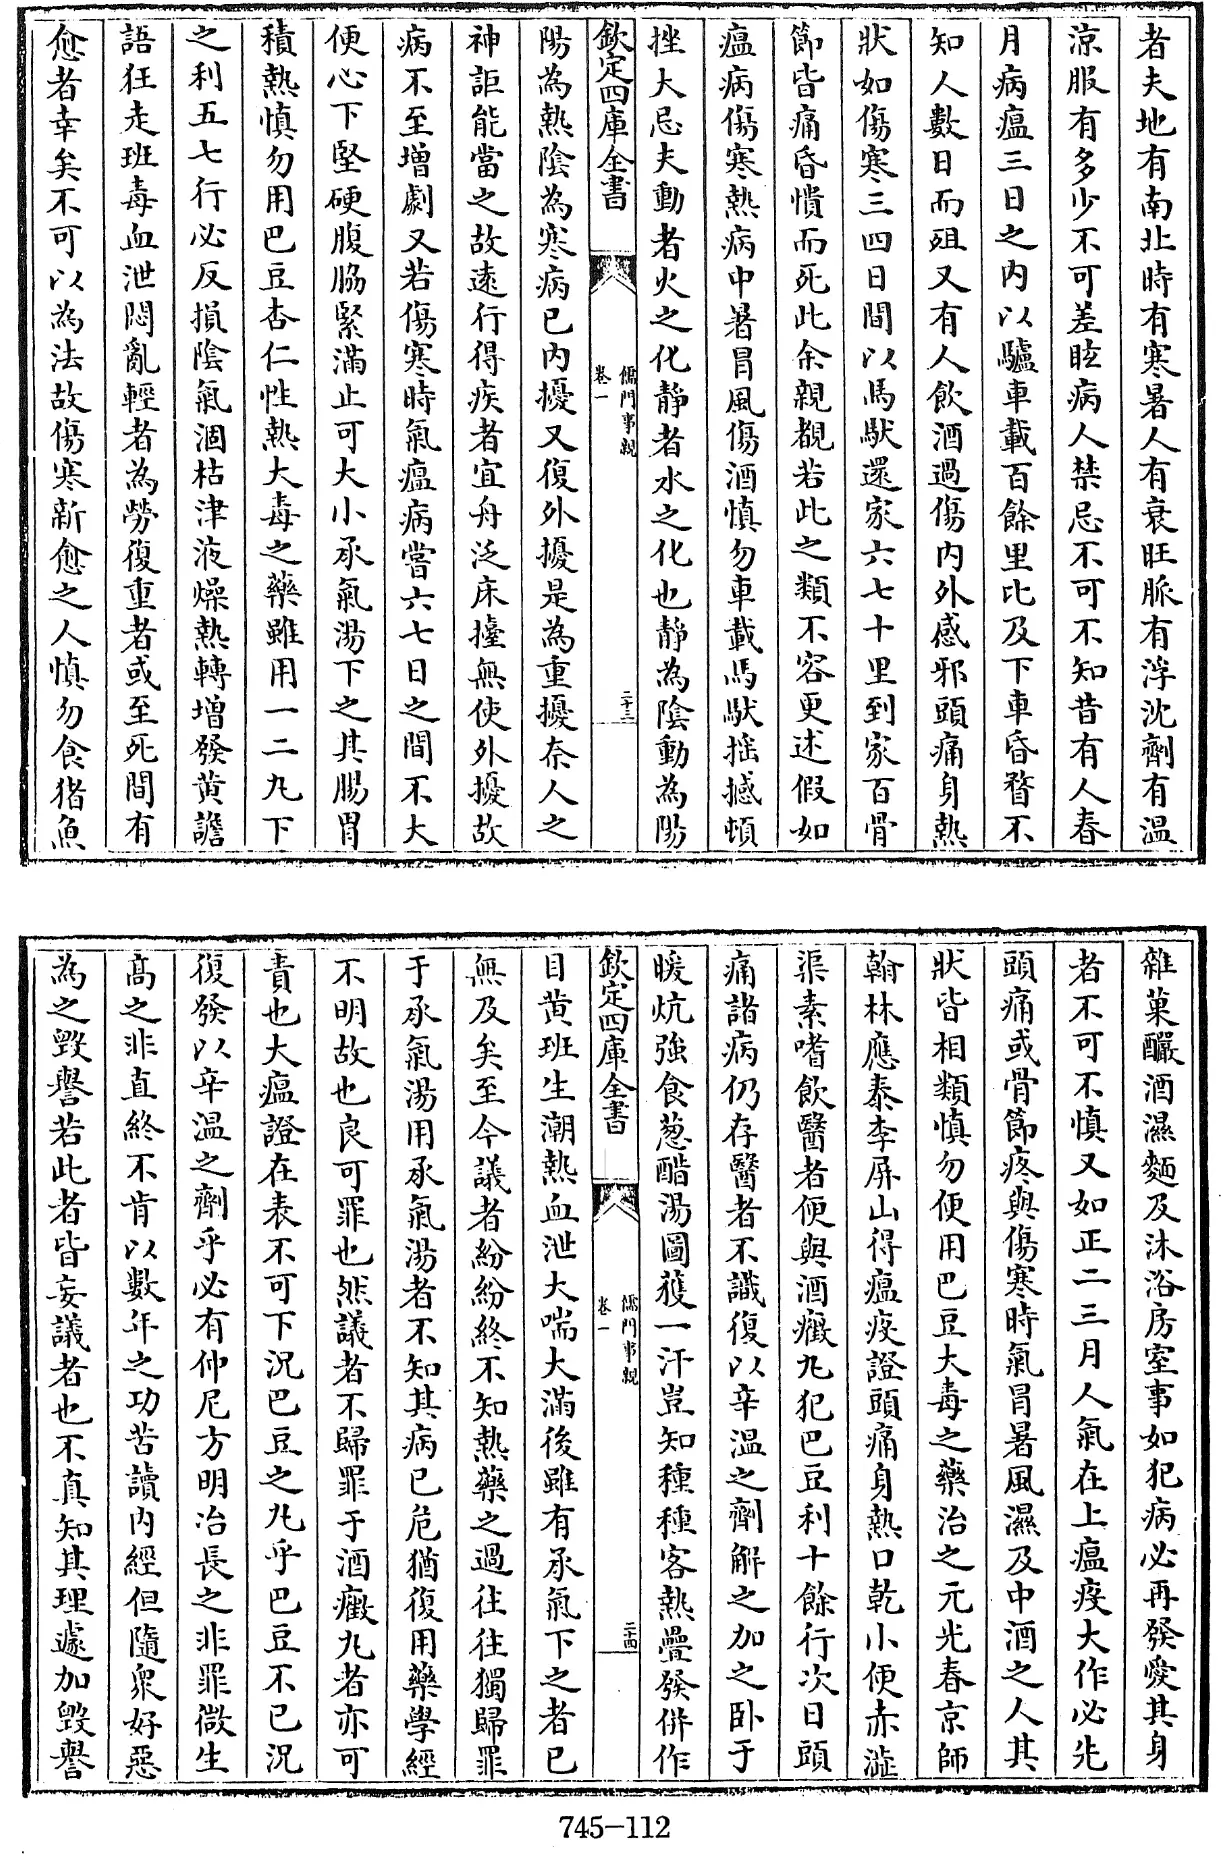 者夫地有南北時有寒暑人有衰旺脈有浮沈劑有温
涼服有多少不可差眩病人禁忌不可不知昔有人春
月病瘟三日之内以驢車載百餘里比及下車昏瞀不
知人數日而殂又有人飲酒過傷内外感邪頭痛身熱
狀如傷寒三四日間以馬馱還家六七十里到家百骨
節皆痛昏憒而死此余親覩若此之類不容更述假如
瘟病傷寒熱病中暑冒風傷酒慎勿車載馬馱揺撼頓
挫大忌夫動者火之化静者水之化也静為陰動為陽
欽定四庫全書
儒門事親
卷一
二十三
陽為熱陰為寒病已内擾又復外擾是為重擾奈人之
神詎能當之故遠行得疾者宜舟泛床擡無使外擾故
病不至增劇又若傷寒時氣瘟病嘗六七日之間不大
便心下堅硬腹脇緊滿止可大小承氣湯下之其腸胃
積熱慎勿用巴豆杏仁性熱大毒之藥雖用一二丸下
之利五七行必反損陰氣涸枯津液燥熱轉增發黄譫
語狂走班毒血泄悶亂輕者為勞復重者或至死間有
愈者幸矣不可以為法故傷寒新愈之人慎勿食猪魚
雜菓釅酒濕麵及沐浴房室事如犯病必再發愛其身
者不可不慎又如正二三月人氣在上瘟疫大作必先
頭痛或骨節疼與傷寒時氣冒暑風濕及中酒之人其
狀皆相類慎勿便用巴豆大毒之藥治之元光春京師
翰林應泰李屏山得瘟疫證頭痛身熱口乾小便赤澁
渠素嗜飲醫者便與酒癥丸犯巴豆利十餘行次日頭
痛諸病仍存醫者不識復以辛温之劑解之加之卧于
暖炕強食葱醋湯圖獲一汗豈知種種客熱疊發併作
欽定四庫全書
儒門事親
卷一
二十四
目黄班生潮熱血泄大喘大滿後雖有承氣下之者已
無及矣至今議者紛紛終不知熱藥之過往往獨歸罪
于承氣湯用承氣湯者不知其病已危猶復用藥學經
不明故也良可罪也然議者不歸罪于酒癥丸者亦可
責也大瘟證在表不可下況巴豆之丸乎巴豆不已況
復發以辛温之劑乎必有仲尼方明冶長之非罪微生
高之非直終不肯以數年之功苦讀内經但隨衆好惡
為之毀譽若此者皆妄議者也不真知其理遽加毀譽
745-112